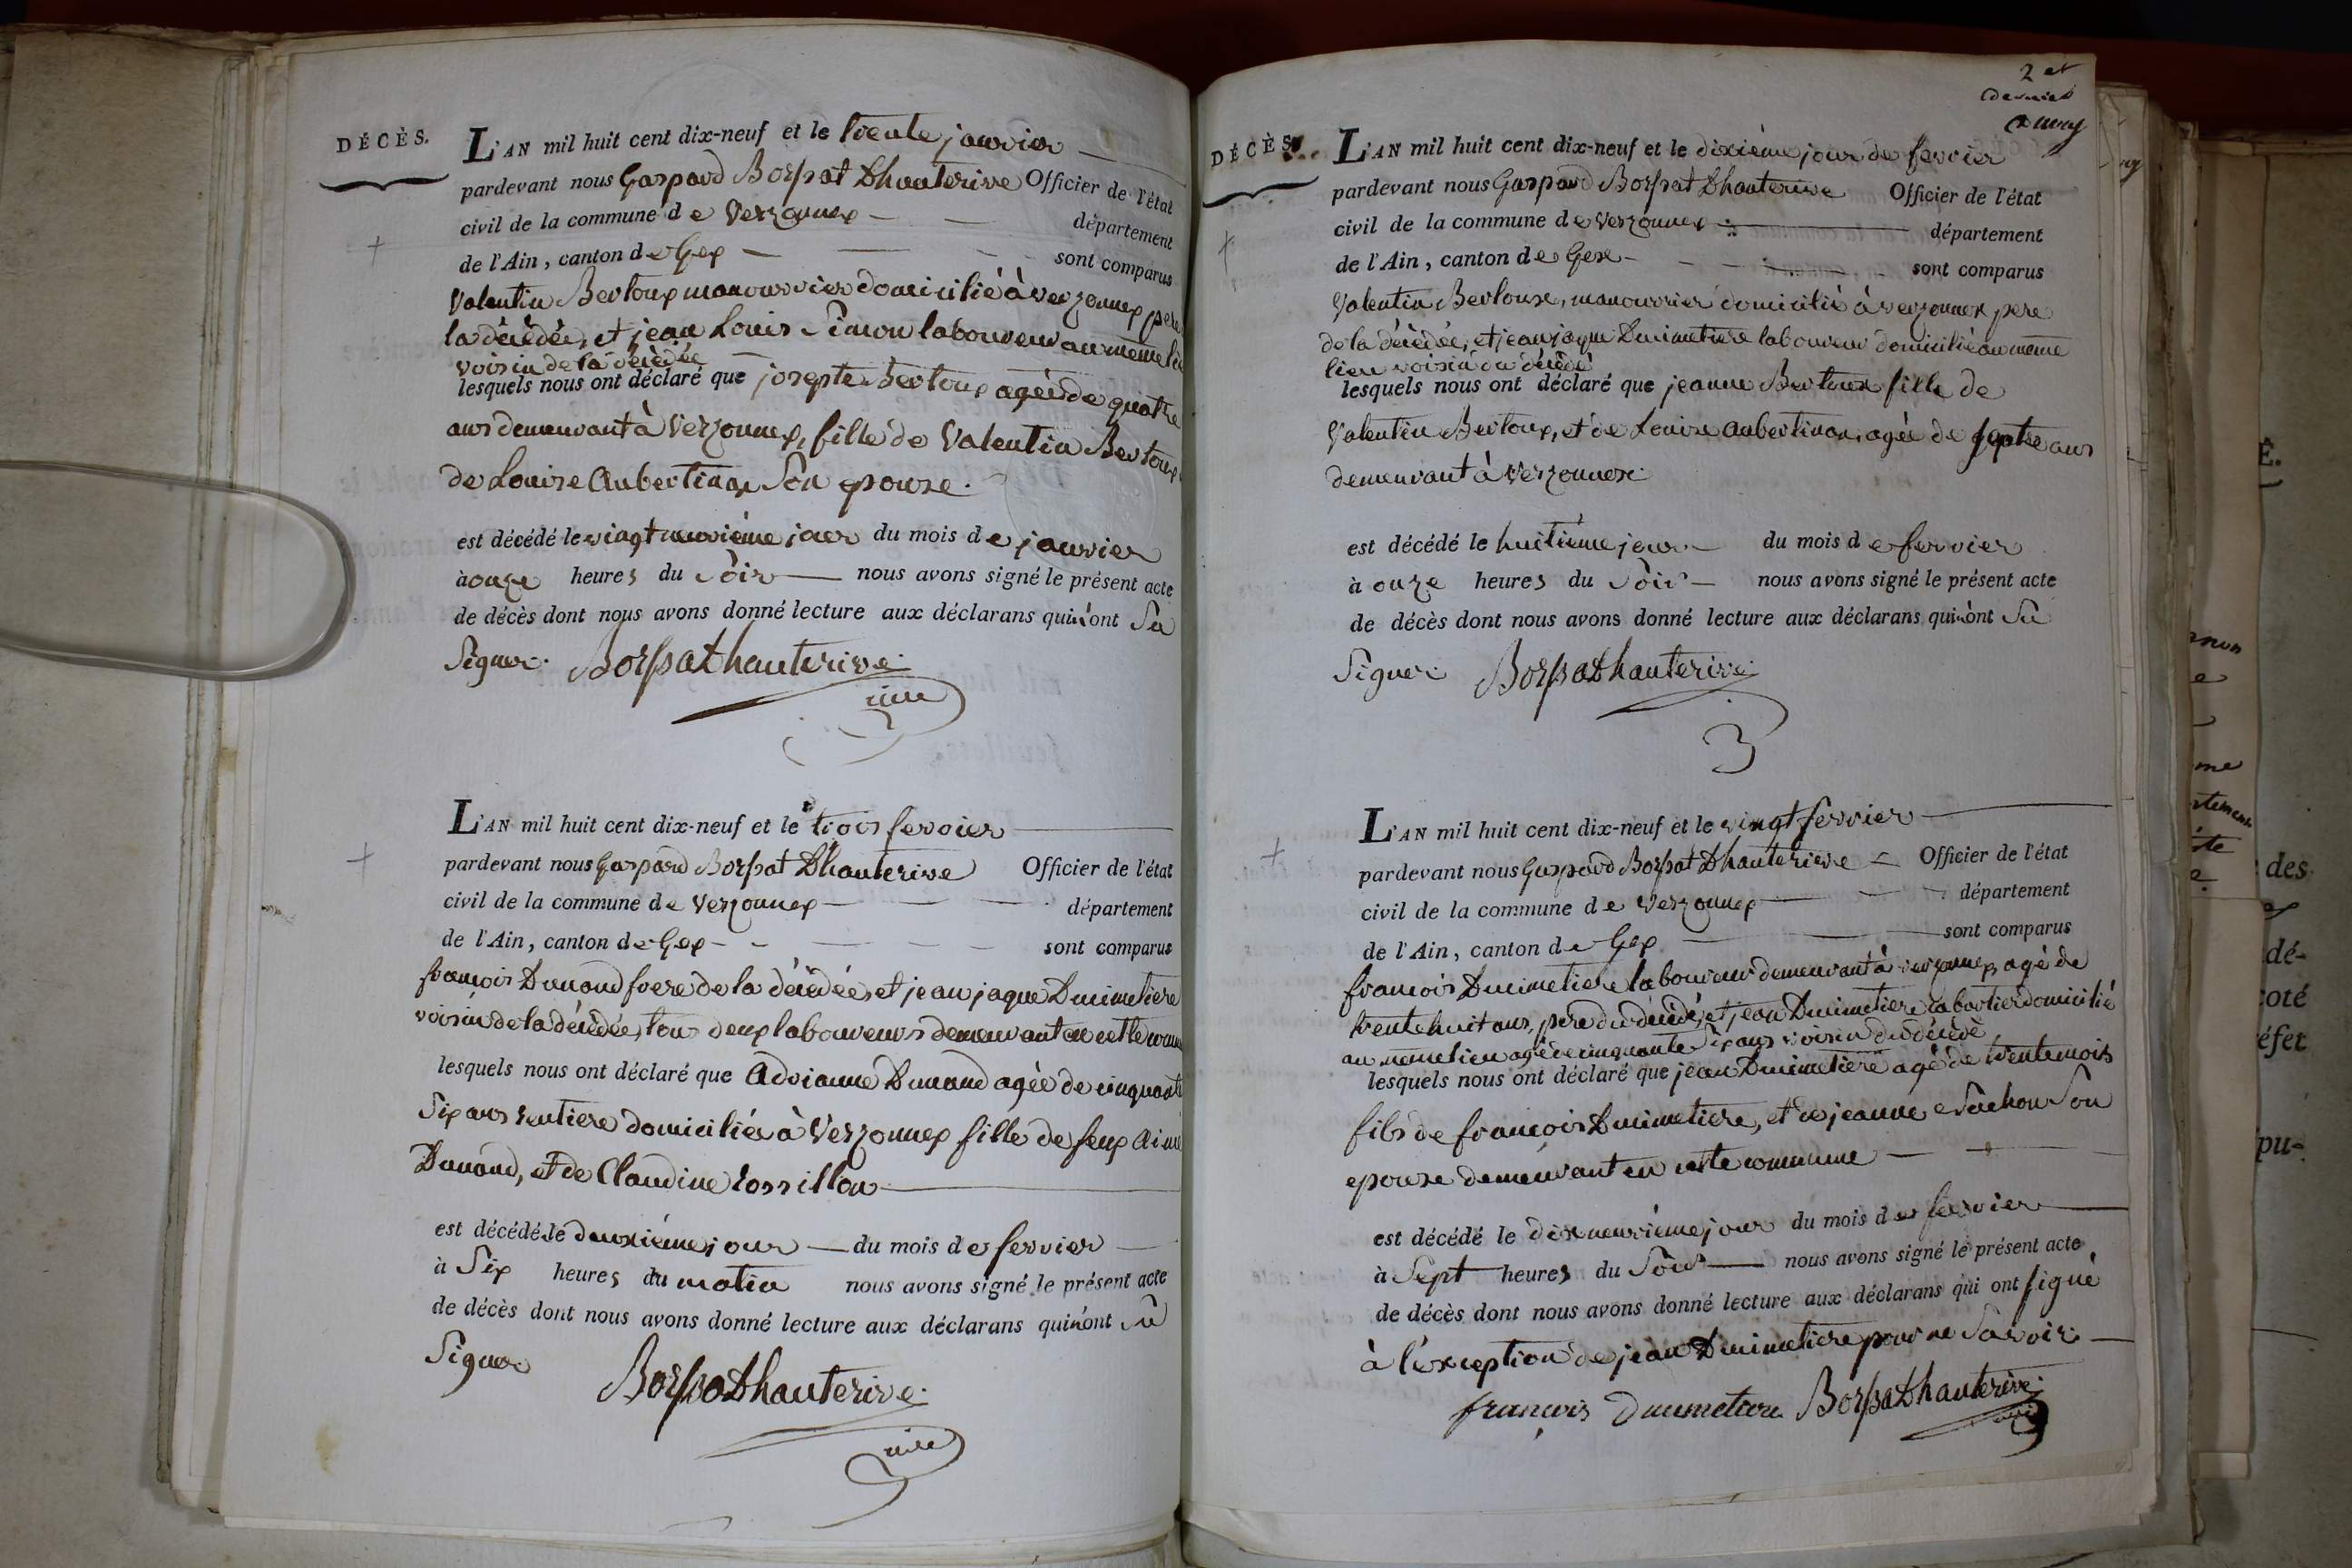 DÉCÈS.
L'AN mil huit cent dix-neuf et le trente janvier
pardevant nous Gaspard Borssat Dhauterive Officier de l'état
civil de la commune de Verzonnex département
de l'Ain, canton de Gex sont comparus
Valentin Bertoux manouvrier domicilié à verzonnex pere
la décédée, et jean Louis Simon laboureur au même lieu
voisin de la décédée
lesquels nous ont déclaré que josepte Bertoux agée de quatre
ans demeurant à Verzonnex, fille de Valentin Bertoux
de Louise Aubertin Son epouse.
est décédé le vingt neuvième jour du mois de janvier
à onze heures du Soir nous avons signé le présent acte
de décès dont nous avons donné lecture aux déclarans qui n'ont Su
Signer. Borssat Dhauterive
L'AN mil huit cent dix-neuf et le trois fervier
pardevant nous Gaspard Borssat Dhauterive Officier de l'état
civil de la commune de Verzonnex département
de l'Ain, canton de Gex sont comparus
francois Dunand frere de la décédée, et jean jaque Duimetiere
voisin de la décédée, tous deux laboureurs demeurant en cette comm
lesquels nous ont déclaré que Adrianne Dunand agée de cinquante
Six ans rentiere domiciliée à Verzonnex fille de feux Aimé
Dunand, et de Claudine Rossillon
est décédé le deuxième jour du mois de fervier
à Six heures du matin nous avons signé le présent acte
de décès dont nous avons donné lecture aux déclarans qui n'ont Su
Signer Borssat Dhauterive
maire
2 et
dernier
DÉCÈS.
L'AN mil huit cent dix-neuf et le dixième jour de fervier
pardevant nous Gaspard Borssat Dhauterive Officier de l'état
civil de la commune de Verzonnex département
de l'Ain, canton de Gex sont comparus
Valentin Bertoux, manouvrier domicilié à verzonnex pere
de la décédée, et jean jaque Duimetiere laboureur domicilié au même
lieu voisin du décédé
lesquels nous ont déclaré que jeanne Bertoux fille de
Valentin Bertoux, et de Louise aubertin, agée de ans
demeurant à Verzonnex
est décédé le huitième jour du mois de fervier
à onze heures du Soir nous avons signé le présent acte
de décès dont nous avons donné lecture aux déclarans qui n'ont Su
Signer Borssat Dhauterive
L'AN mil huit cent dix-neuf et le vingt fervier
pardevant nous Gaspard Borssat Dhauterive Officier de l'état
civil de la commune de Verzonnex département
de l'Ain, canton de Gex sont comparus
francois Duimetiere laboureur demeurant à verzonnex, agé de
trente huit ans, père du décédé, et jean Duimetiere domicilié
au même lieu agé de cinquante Six ans voisin du décédé
lesquels nous ont déclaré que jean Duimetiere agé de trente mois
fils de francois Duimetiere, et de jeanne Son
epouse demeurant en cette commune
est décédé le dix neuvième jour du mois de fervier
à Sept heures du Soir nous avons signé le présent acte
de décès dont nous avons donné lecture aux déclarans qui ont signé
à l'exception de jean Duimetiere pour ne Savoir
françois Duimetiere Borssat Dhauterive
des
dé-
coté
éfet
pu-